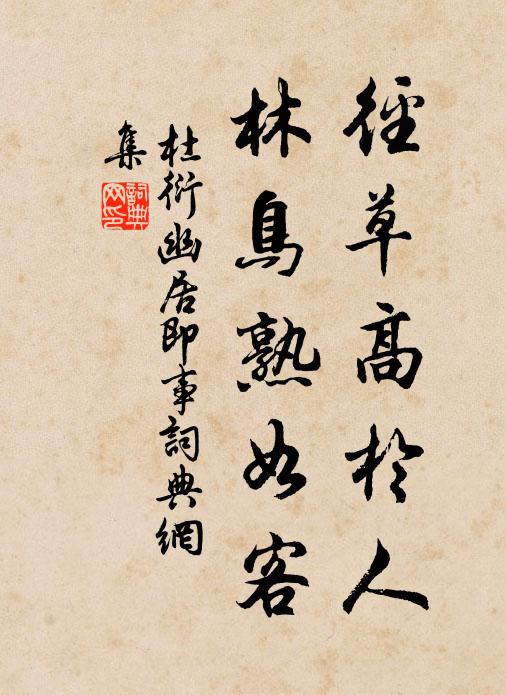 徑草高於人
林鳥熟如客
杜衍幽居即事詞典網
集
詞典
网印